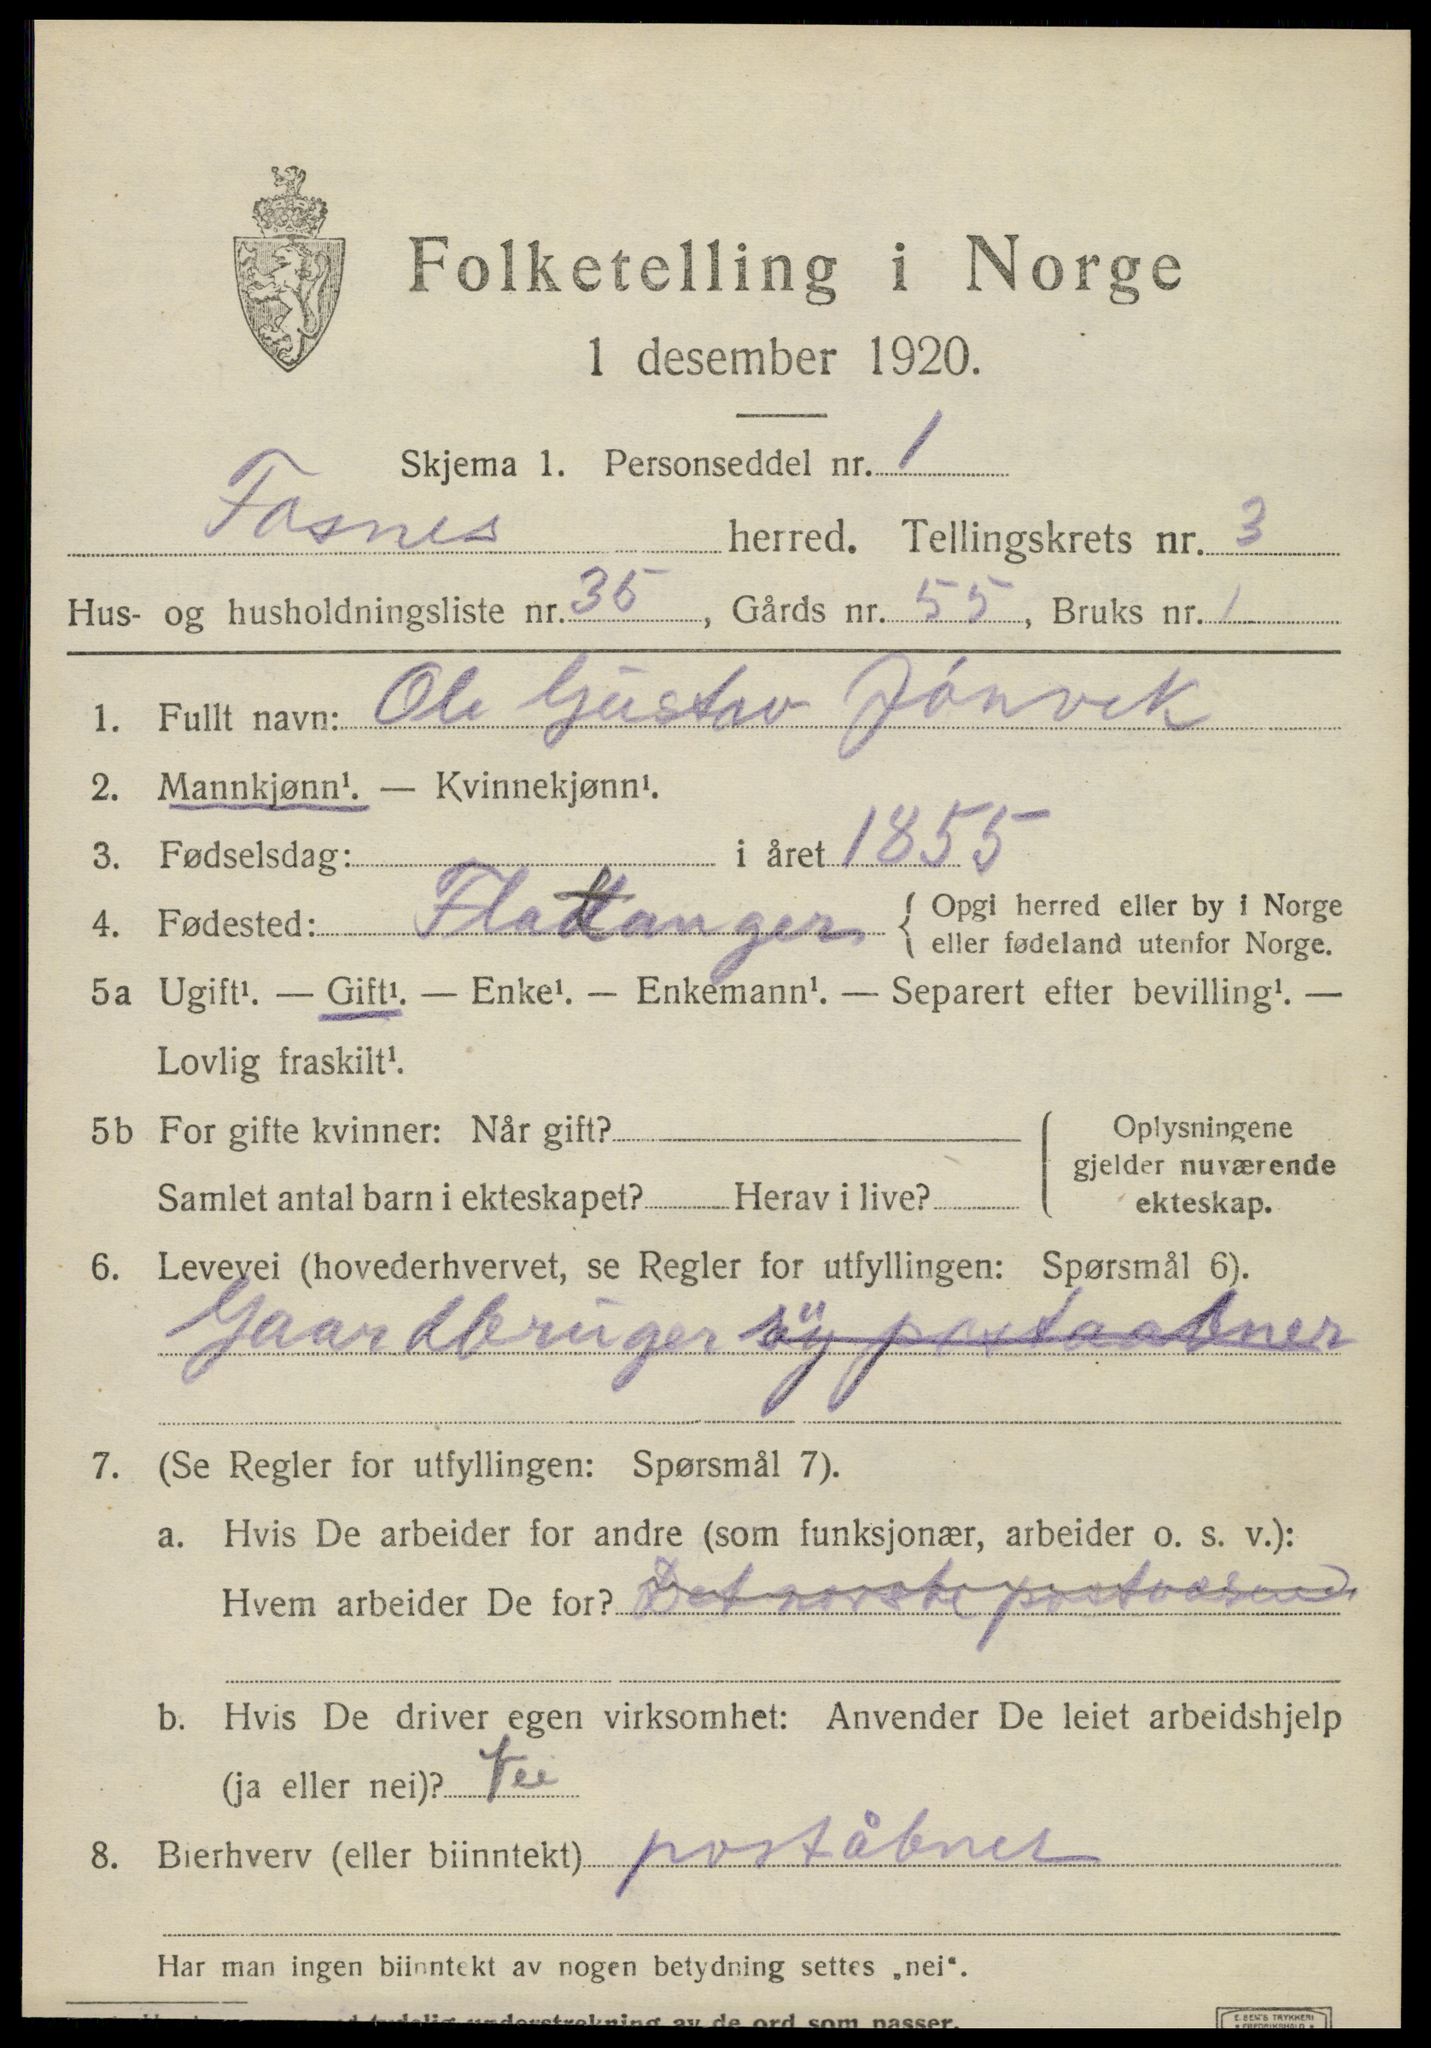 Folketelling i Norge
1 desember 1920.
Skjema 1. Personseddel nr. 1
Fosnes herred. Tellingskrets nr. 3
Hus- og husholdningsliste nr. 35, Gårds nr. 55, Bruks nr. 1
1. Fullt navn: Ole Gustav Jönvik
2. Mannkjønn¹. — Kvinnekjønn¹.
3. Fødselsdag: i året 1855
4. Fødested: Flattanger { Opgi herred eller by i Norge
eller fødeland utenfor Norge.
5a Ugift¹. — Gift¹. — Enke¹. — Enkemann¹. — Separert efter bevilling¹. —
Lovlig fraskilt¹.
5b For gifte kvinner: Når gift? { Oplysningene
gjelder nuværende
Samlet antal barn i ekteskapet? Herav i live? ekteskap.
6. Levevei (hovederhvervet, se Regler for utfyllingen: Spørsmål 6).
Gaardbruger og postaabner
7. (Se Regler for utfyllingen: Spørsmål 7).
a. Hvis De arbeider for andre (som funksjonær, arbeider o. s. v.):
Hvem arbeider De for? Det norske postvæsen
b. Hvis De driver egen virksomhet: Anvender De leiet arbeidshjelp
(ja eller nei)? Nei
8. Bierhverv (eller biinntekt) poståbner
Har man ingen biinntekt av nogen betydning settes „nei“.
tydelig understrekning av de ord som passer.
E. SEM'S TRYKKERI
FREDRIKSHALD